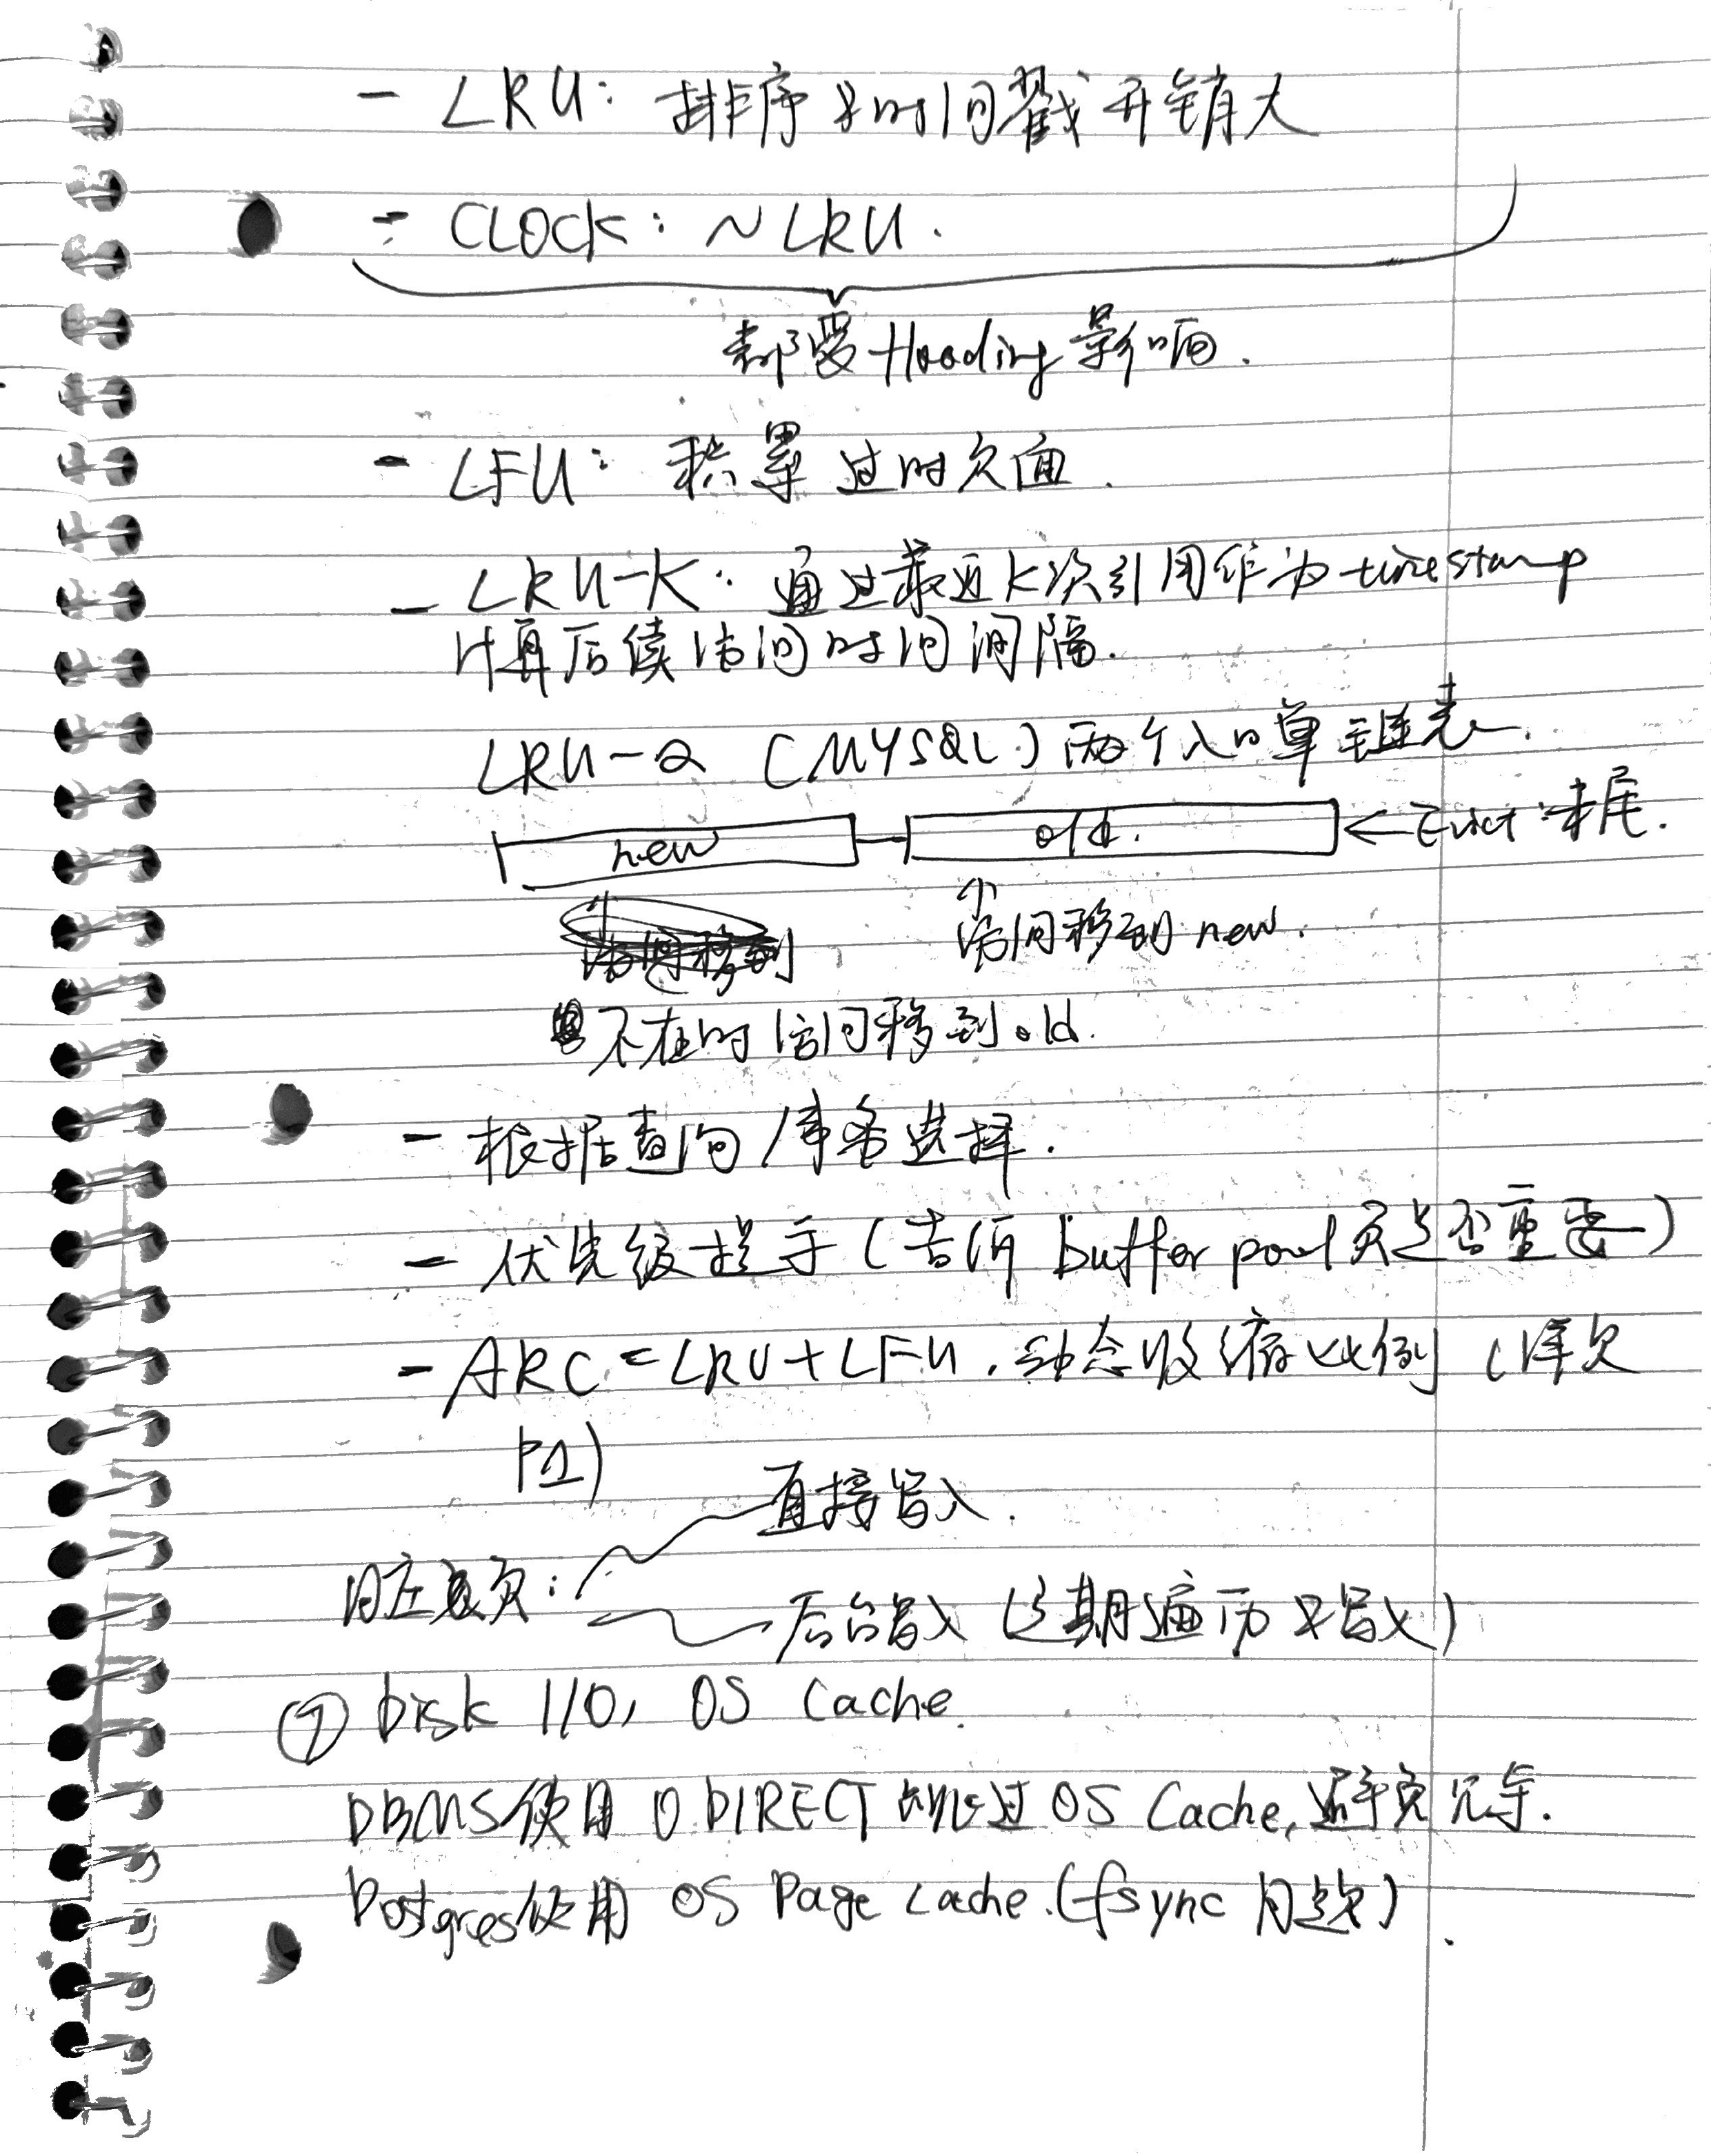 - LRU: 排序 时间戳开销大
- CLOCK: ~LRU.
都受flooding影响.
- LFU: 积累过时页面.
- LRU-K: 通过最近K次引用作为timestamp
计算后续访问时间间隔.
LRU-2 (MYSQL) 两个入口单链表.
new old. ← Evict 末尾.
访问移到 访问移到 new.
不在时访问移到old.
- 根据查询/事务选择.
- 优先级提示(告诉 buffer pool 页是否重要)
- ARC = LRU+LFU. 动态收缩比例 (详见
P1)
直接写入.
脏页:
后台写入 (定期遍历 写入)
⑦ Disk I/O, OS Cache.
DBMS使用 O_DIRECT 绕过 OS Cache, 避免冗余.
Postgres使用 OS Page Cache. (fsync 问题)